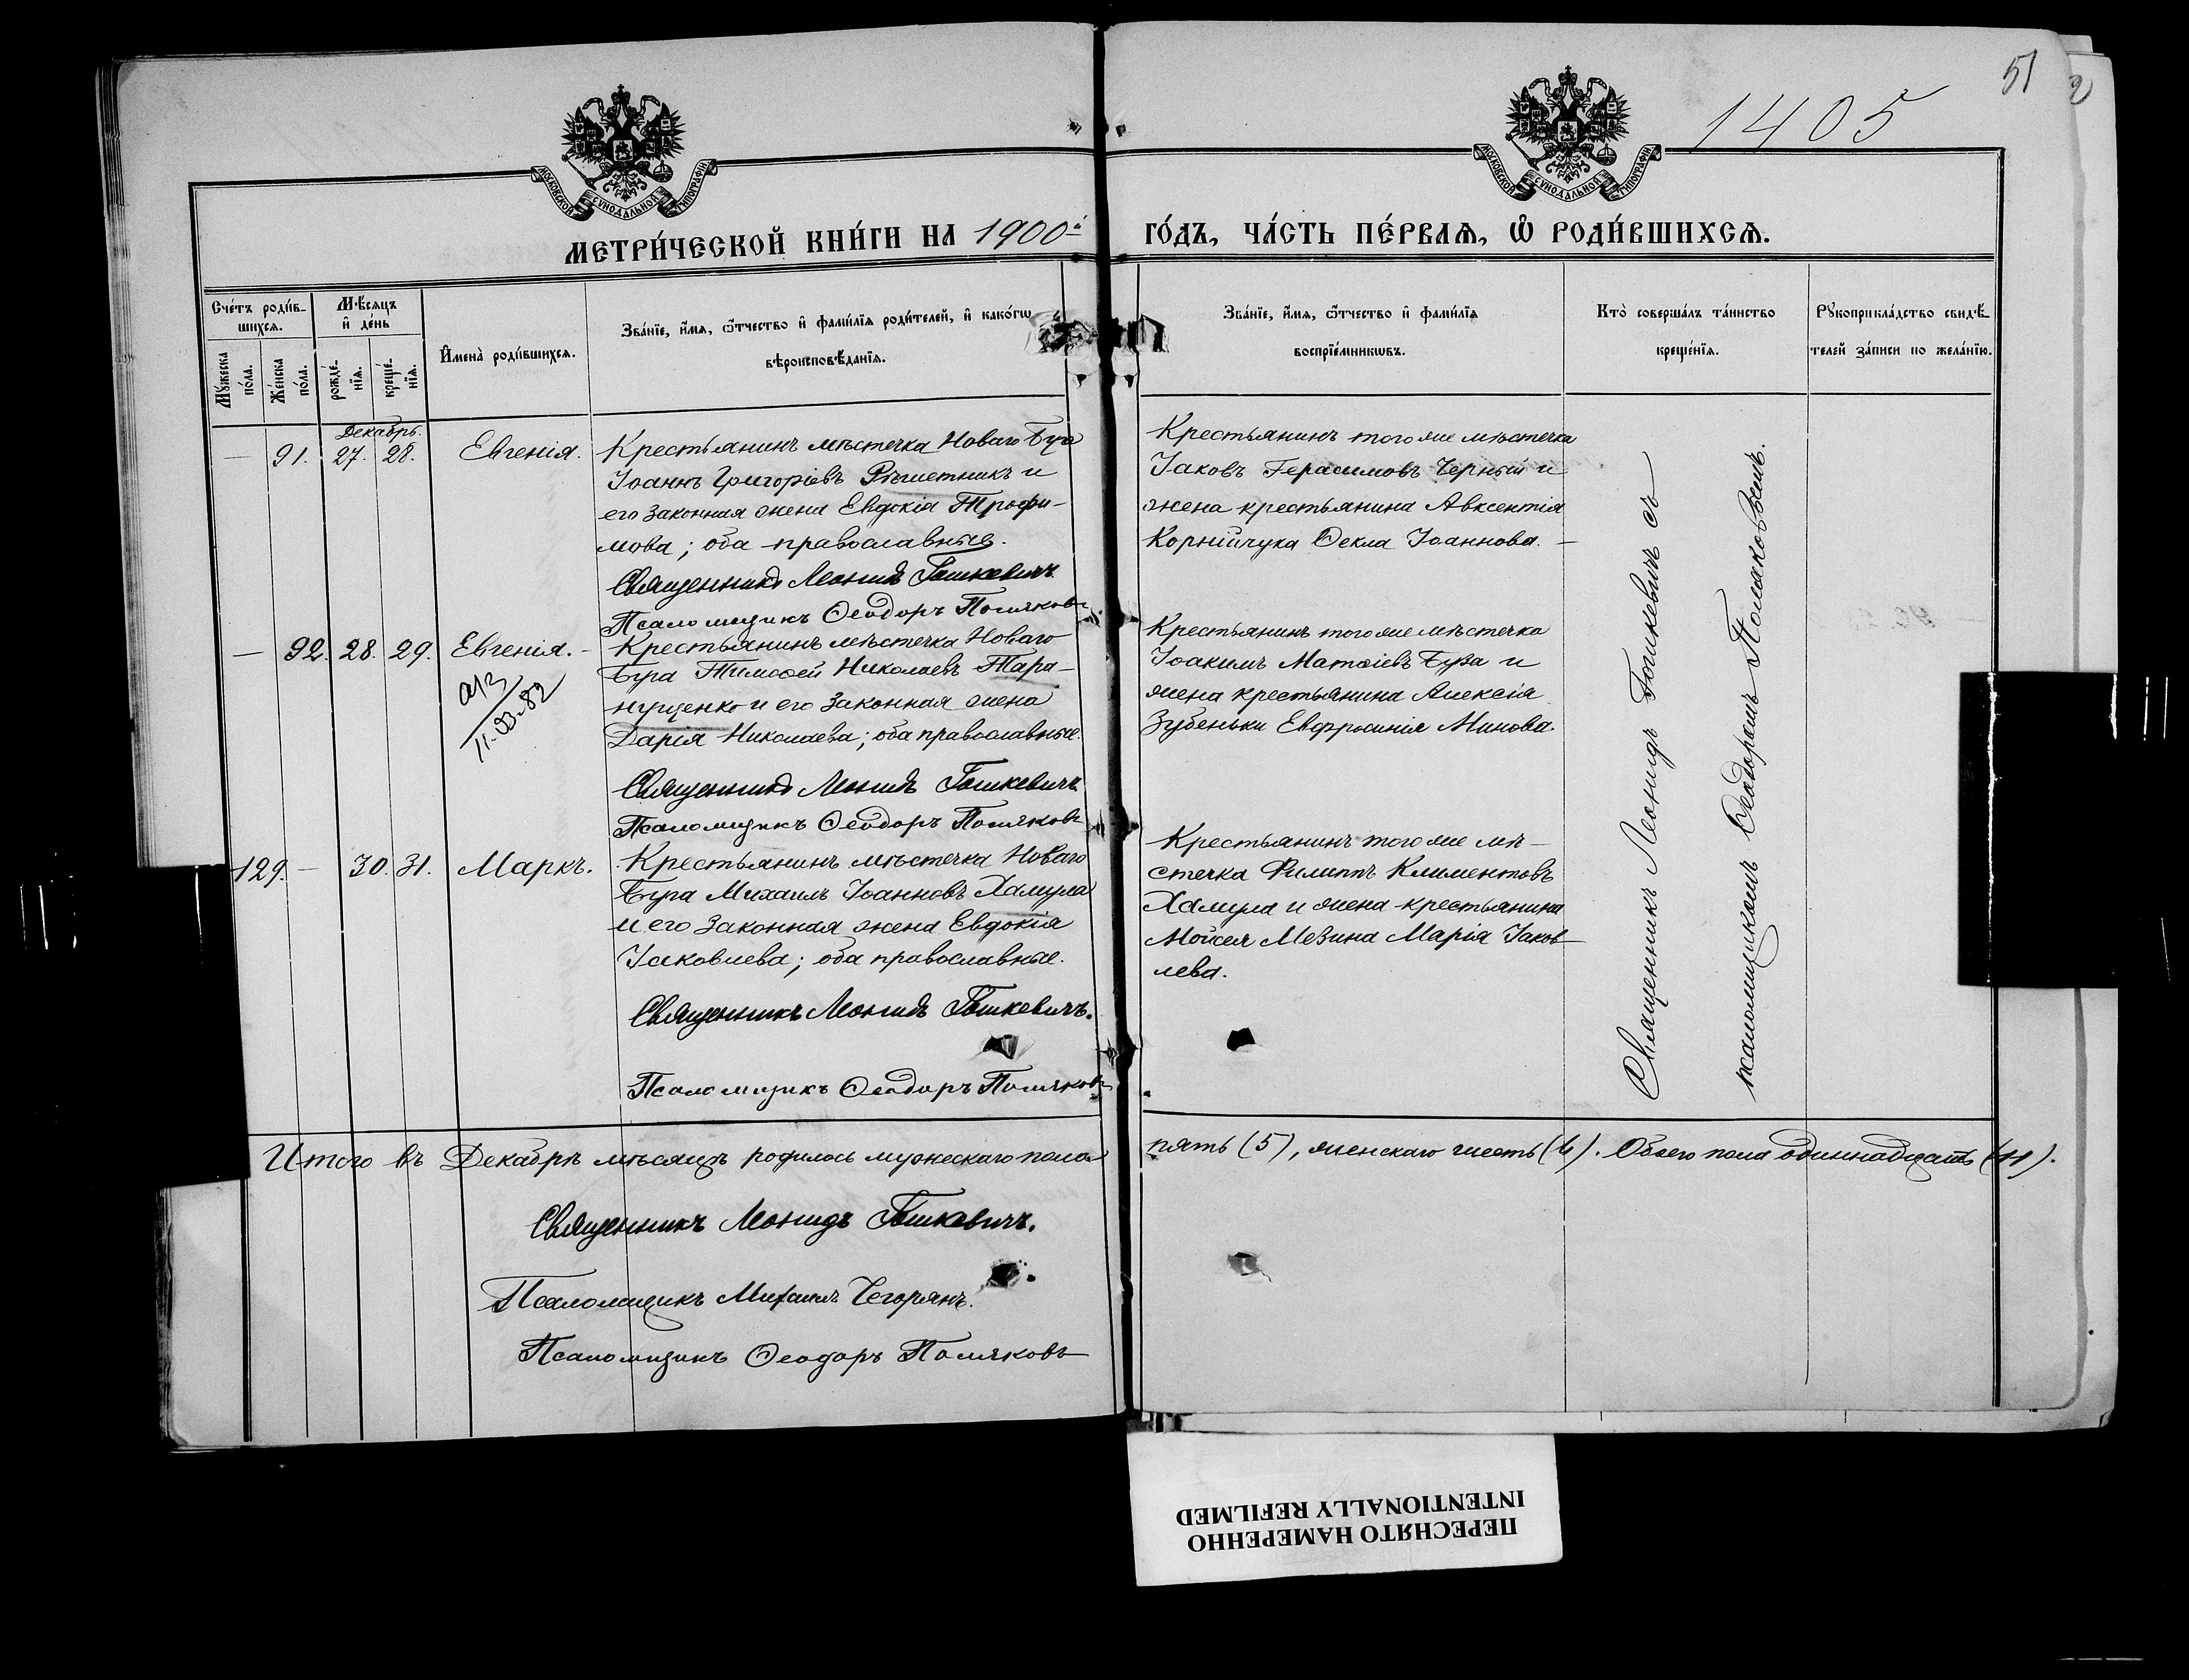 51
2
1405
МОСКОВСКОЙ СѴНОДАЛЬНОЙ ТИПОГРАФІИ
МОСКОВСКОЙ СѴНОДАЛЬНОЙ ТИПОГРАФІИ
МЕТРИ́ЧЕСКОЙ КНИ́ГИ НА 1900й ГО́ДЪ, ЧА́СТЬ ПЕ́РВАѦ, Ѡ҆ РОДИ́ВШИХСѦ.
Сче́тъ роди́в-
шихсѧ.
Мꙋ́жеска
по́ла.
Же́нска
по́ла.
Мѣ́сѧцъ
и҆ де́нь
рожде́-
нїѧ.
креще́-
нїѧ.
И҆мена̀ роди́вшихсѧ.
Зва́нїе, и҆́мѧ, ѻ҆́тчество и҆ фами́лїѧ роди́телей, и҆ како́гѡ
вѣроисповѣ́данїѧ.
Зва́нїе, и҆́мѧ, ѻ҆́тчество и҆ фами́лїѧ
воспрїе́мникѡвъ.
Кто̀ соверша́лъ та́инство
креще́нїѧ.
Рꙋкоприкла́дство свидѣ́-
телей за́писи по жела́нїю.
Декабрь.
— 91. 27. 28. Евгенія.
Крестьянинъ мѣстечка Новаго Буга
Іоаннъ Григоріевъ Рѣшетникъ и
его законная жена Евдокія Трофи-
мова; оба православные.
Священникъ Леонидъ Гошкевичъ
Псаломщикъ Ѳеодоръ Поляковъ
Крестьянинъ того же мѣстечка
Іаковъ Герасимовъ Черный и
жена крестьянина Авксентія
Корнійчука Ѳекла Іоаннова. —
— 92. 28. 29. Евгенія. -
11-03-82
Крестьянинъ мѣстечка Новаго
Буга Тимоѳей Николаевъ Тара-
нущенко и его законная жена
Дарія Николаева; оба православные.
Священникъ Леонидъ Гошкевичъ
Псаломщикъ Ѳеодоръ Поляковъ
Крестьянинъ того же мѣстечка
Іоакимъ Матѳіевъ Буза и
жена крестьянина Алексія
Зубеньки Евфросинія Минова.
129. — 30. 31. Маркъ.
Крестьянинъ мѣстечка Новаго
Буга Михаилъ Іоанновъ Хамула
и его законная жена Евдокія
Іаковлева; оба православные.
Священникъ Леонидъ Гошкевичъ.
Псаломщикъ Ѳеодоръ Поляковъ
Крестьянинъ того же мѣ-
стечка Филиппъ Климентовъ
Хамула и жена крестьянина
Мойсея Мезина Марія Іаков-
лева.
Священникъ Леонидъ Гошкевичъ съ
псаломщикомъ Ѳеодоромъ Поляковымъ.
Итого въ Декабрѣ мѣсяцѣ родилось мужескаго пола пять (5), женскаго шесть (6). Обоего пола одиннадцать (11).
Священникъ Леонидъ Гошкевичъ.
Псаломщикъ Михаилъ Чегорянъ.
Псаломщикъ Ѳеодоръ Поляковъ
ПЕРЕСНЯТО НАМЕРЕННО
INTENTIONALLY REFILMED